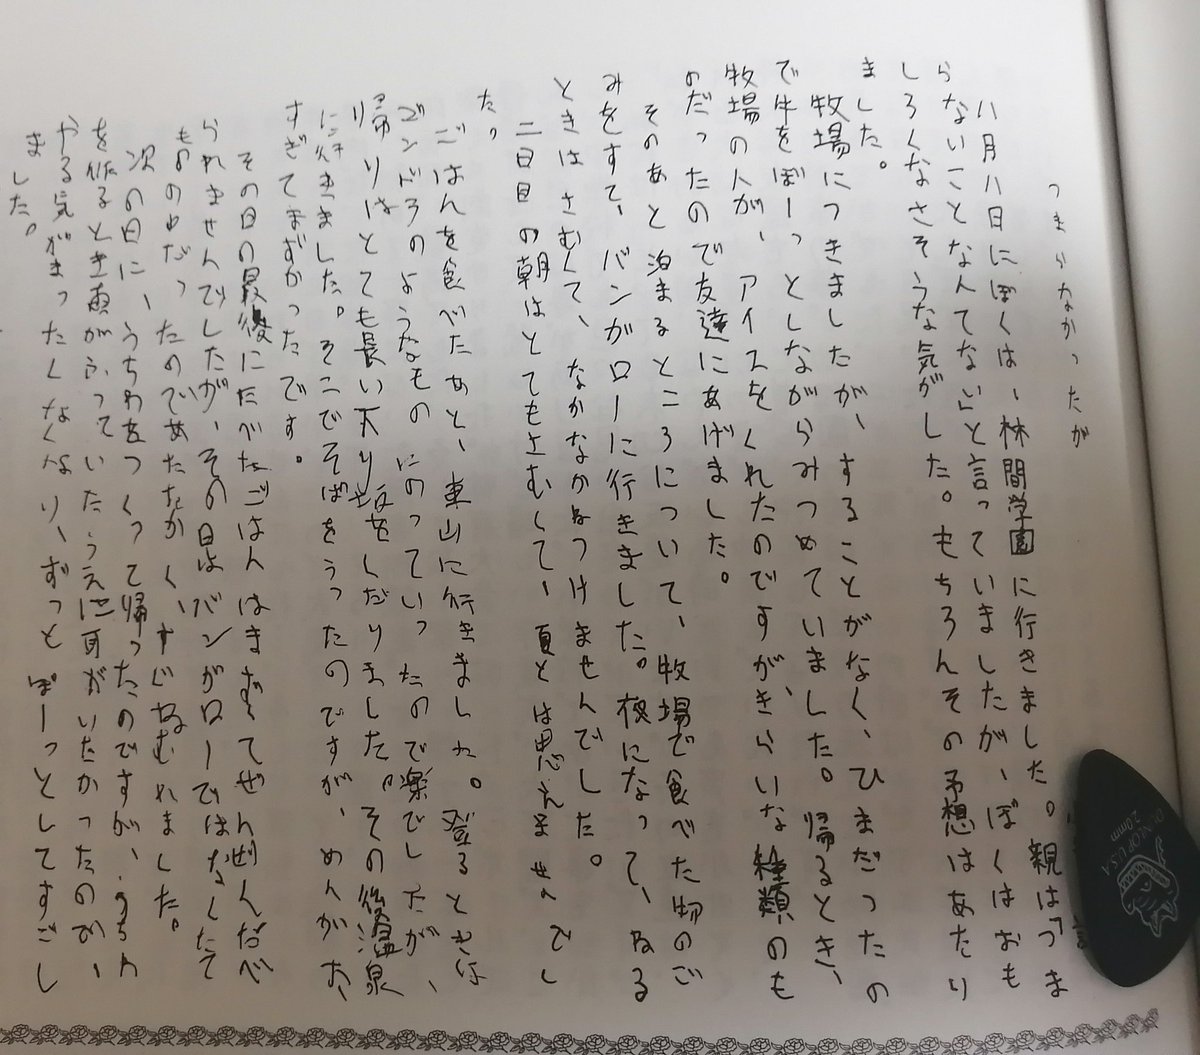 つまらなかったが
八月八日にぼくは、林間学園に行きました。親は「つま
らないことなんてない」と言っていましたが、ぼくはおも
しろくなさそうな気がした。もちろんその予想はあたり
ました。
牧場につきましたが、することがなく、ひまだったの
で牛をぼーっとしながらみつめていました。帰るとき、
牧場の人が、アイスをくれたのですがきらいな種類のも
のだったので友達にあげました。
そのあと泊まるところについて、牧場で食べた物のご
みをすて、バンガローに行きました。夜になって、ねる
ときはさむくて、なかなかねつけませんでした。
二日目の朝はとてもさむくて、夏とは思えませんでし
た。
ごはんを食べたあと、東山に行きました。登るときは
ゴンドラのようなものにのっていったので楽でしたが、
帰りはとても長い下り坂をくだりました。その後温泉
に行きました。そこでそばをうったのですが、めんがお、
すぎてまずかったです。
その日の最後にたべたごはんはまずくてぜんぜんたべ
られませんでしたが、その日はバンガローではなくたて
ものの中だったのであたたかく、すぐねむれました。
次の日に、うちわをつくって帰ったのですが、うちわ
を作るとき雨がふっていたうえに耳がいたかったので、
やる気がまったくなくなり、ずっとぼーっとしてすごし
ました。
DUNLOP U.S.A
2.0mm